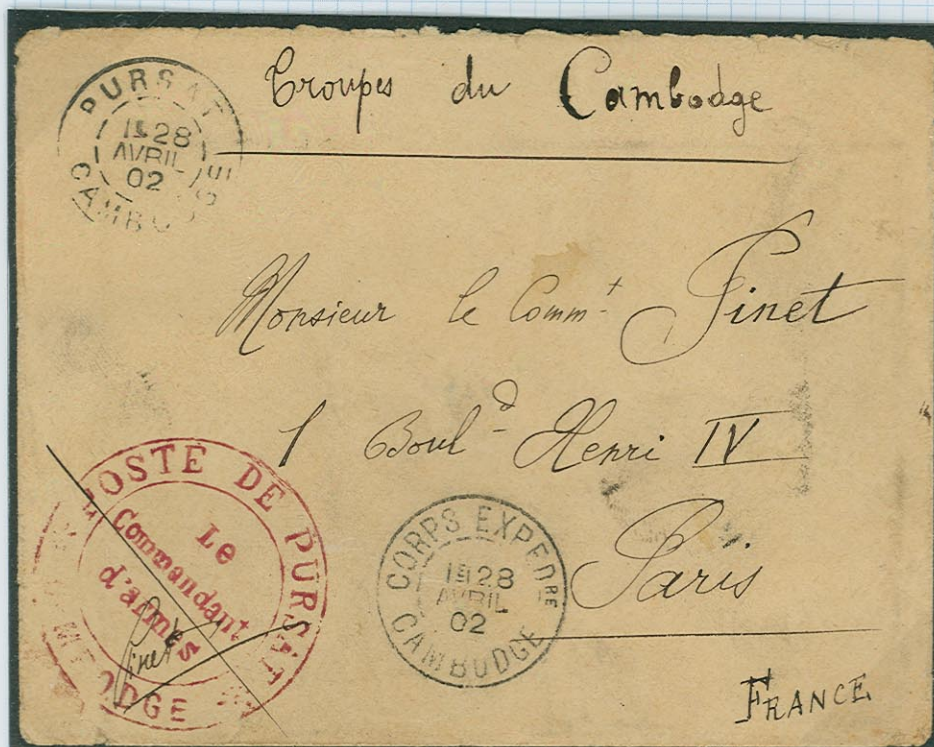 PURSAT
1E 28
AVRIL
02
CAMBODGE
Troupes du Cambodge
Monsieur le Commt Pinet
1 Bould Henri IV
Paris
FRANCE
POSTE DE PURSAT
Le
Commandant
d'armes
CORPS EXPEDRE
1E 28
AVRIL
02
CAMBODGE